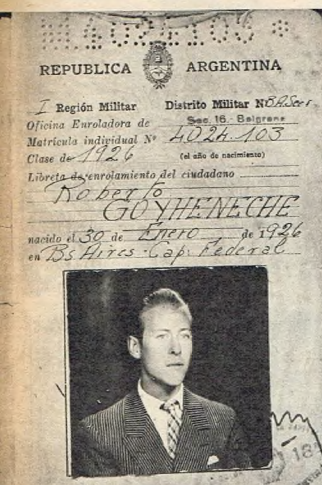 M.4024103 *
REPUBLICA ARGENTINA
I Región Militar Distrito Militar Nº
Oficina Enroladora de Sec. 16 - Belgrano
Matrícula individual Nº 4024.103
Clase de 1926 (el año de nacimiento)
Libreta de enrolamiento del ciudadano
Roberto
GOYHENECHE
nacido el 30 de Enero de 1926
en Bs Aires - Cap. Federal
18